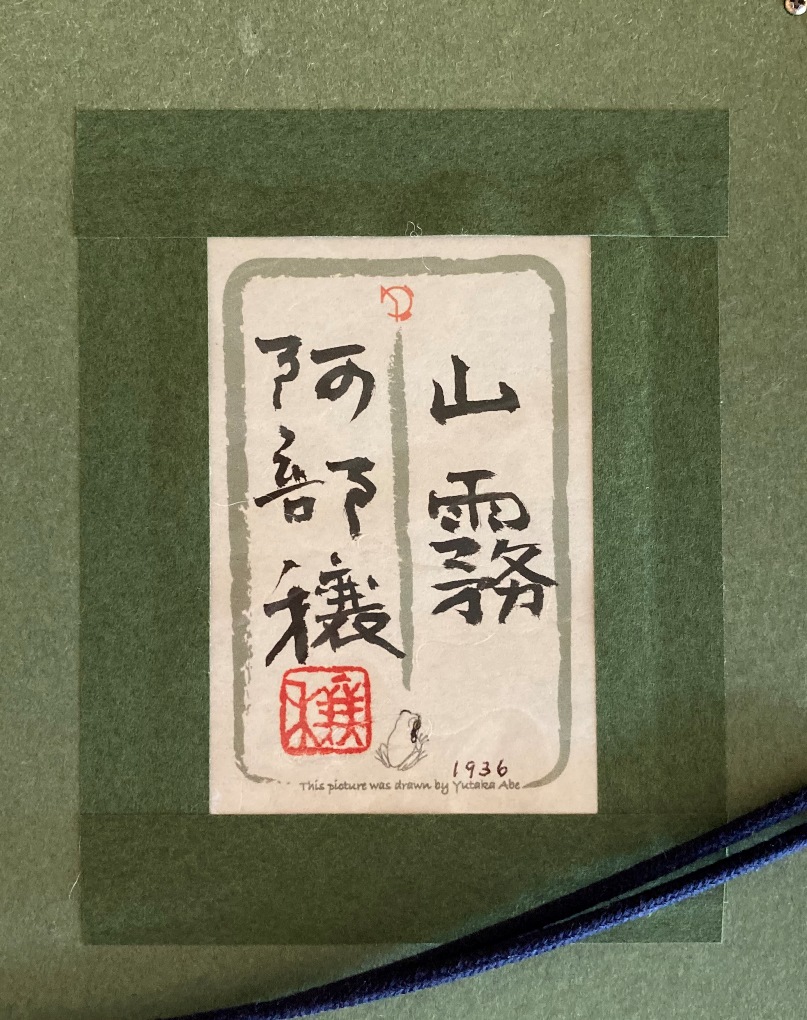 山霧
阿部穣
穣
1936
This picture was drawn by Yutaka Abe